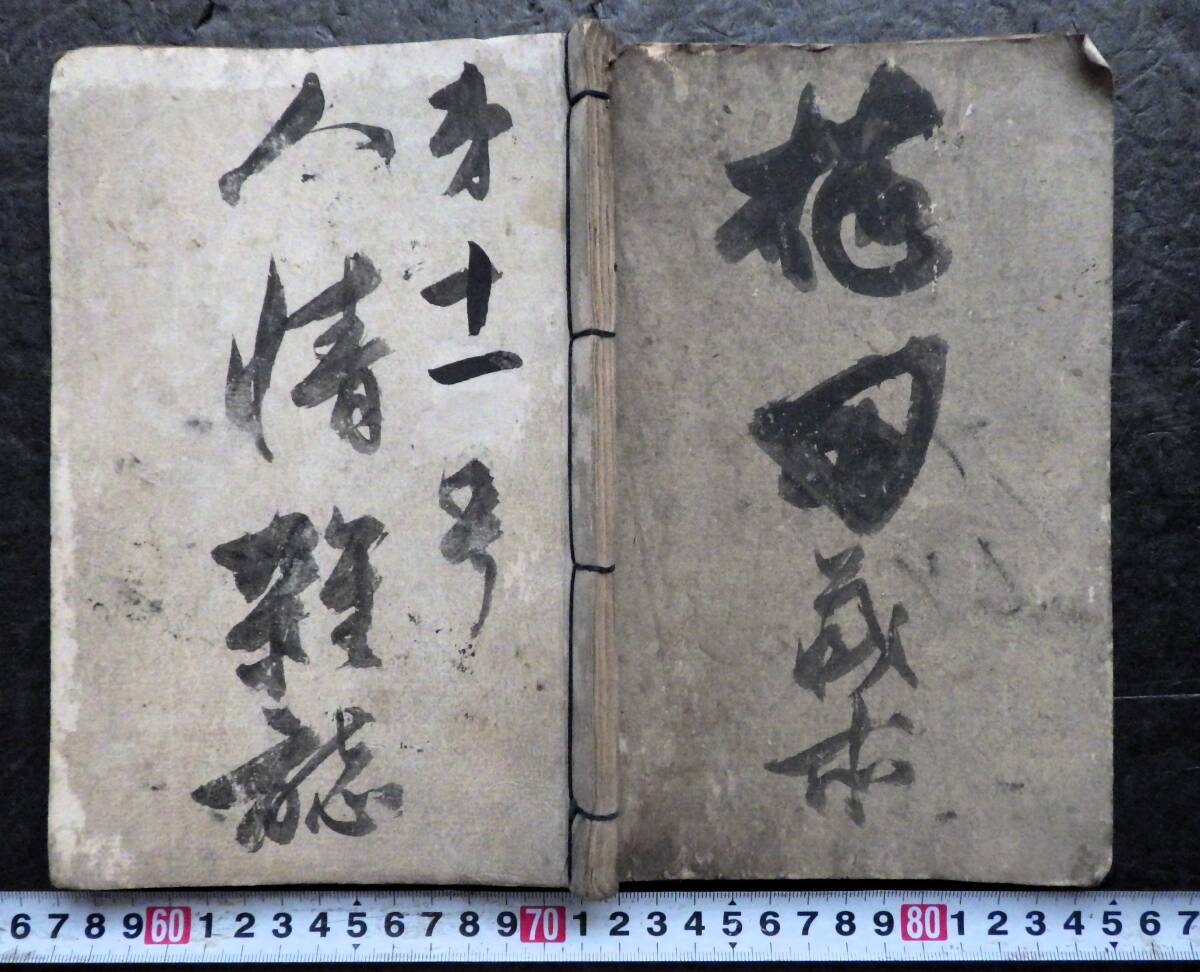 田蔵本
第十一号
人情雜誌
6 7 8 9 60 1 2 3 4 5 6 7 8 9 70 1 2 3 4 5 6 7 8 9 80 1 2 3 4 5 6 7